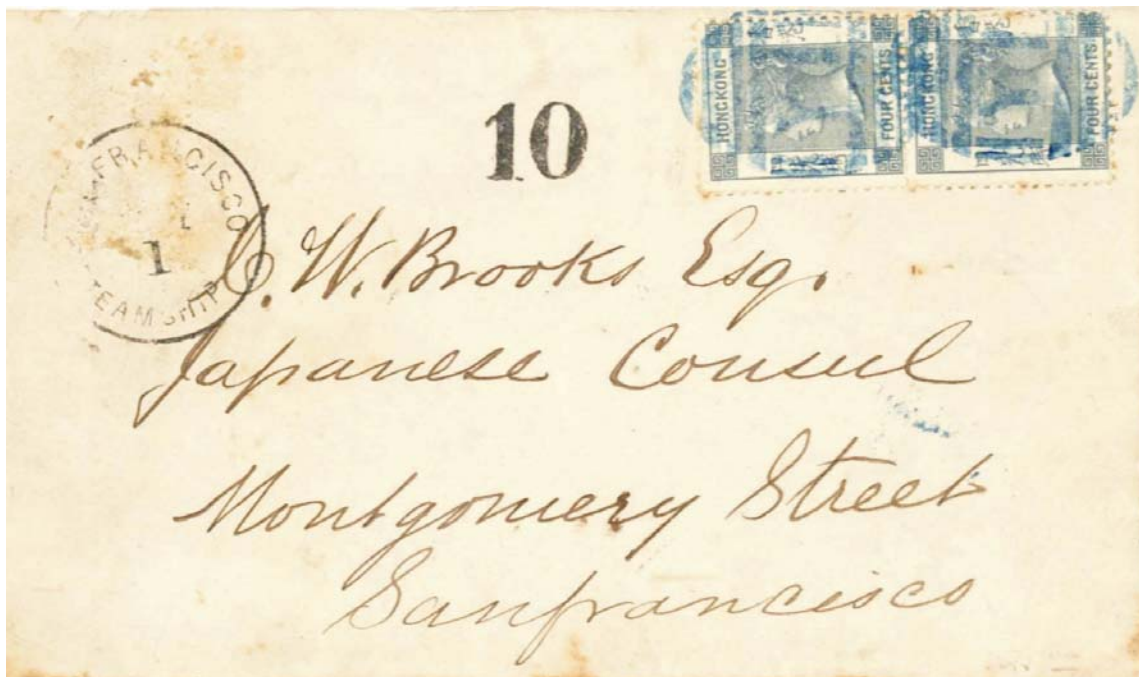 HONGKONG FOUR CENTS HONGKONG FOUR CENTS
10
SAN FRANCISCO
1
STEAMSHIP
C. W. Brooks Esq.
Japanese Consul
Montgomery Street
Sanfrancisco